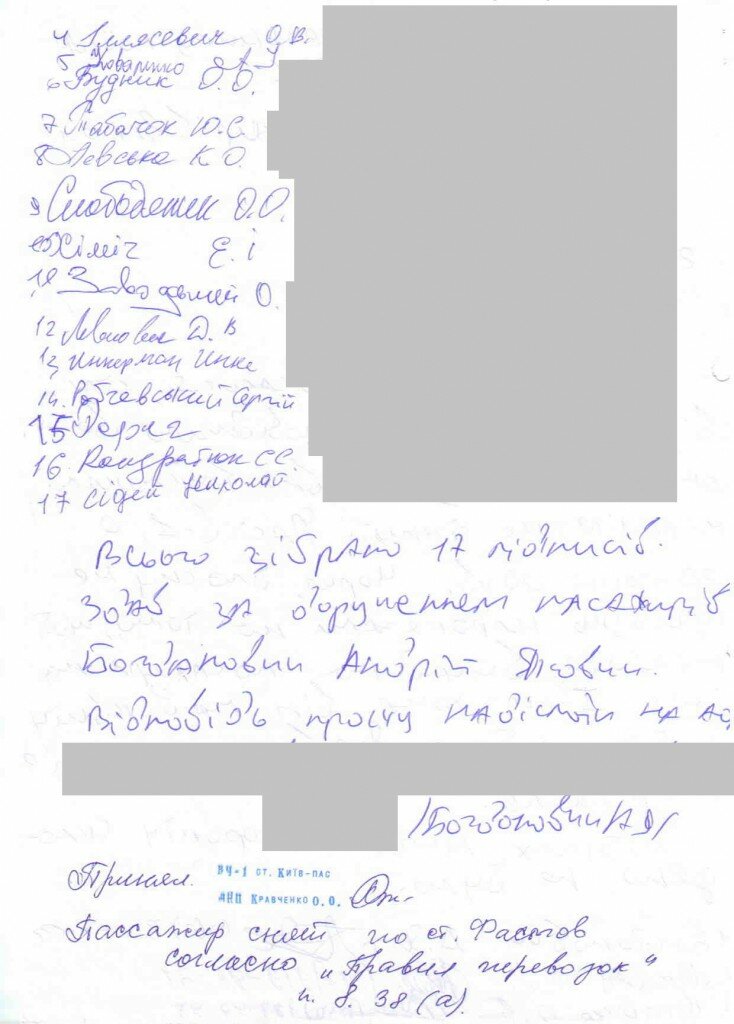 4 Іллясевич О.В.
5 Коваленко
6 Будник О.О.
7 Табачок Ю.С.
8 Левська К О.
9 Слободяник О.О.
10 Хіміч Є. І
11 Завод О.
12 Д. В
13 Инкерман Инна
14. Рабчевський Сергій
15
16 Кондратюк С.С.
17 Сідей Николай
Всього зібрано 17 підписів.
Здав за дорученнем пасажирів
Богданович Андрій Якович.
Відповідь прошу надіслати на ад
/Богданович А Я/
Принял.
ВЧ-1 ст. Київ-пас
ДНП Кравченко О.О.
Пассажир снят по ст. Фастов
согласно „Правил перевозок“
п. 8. 38 (а).